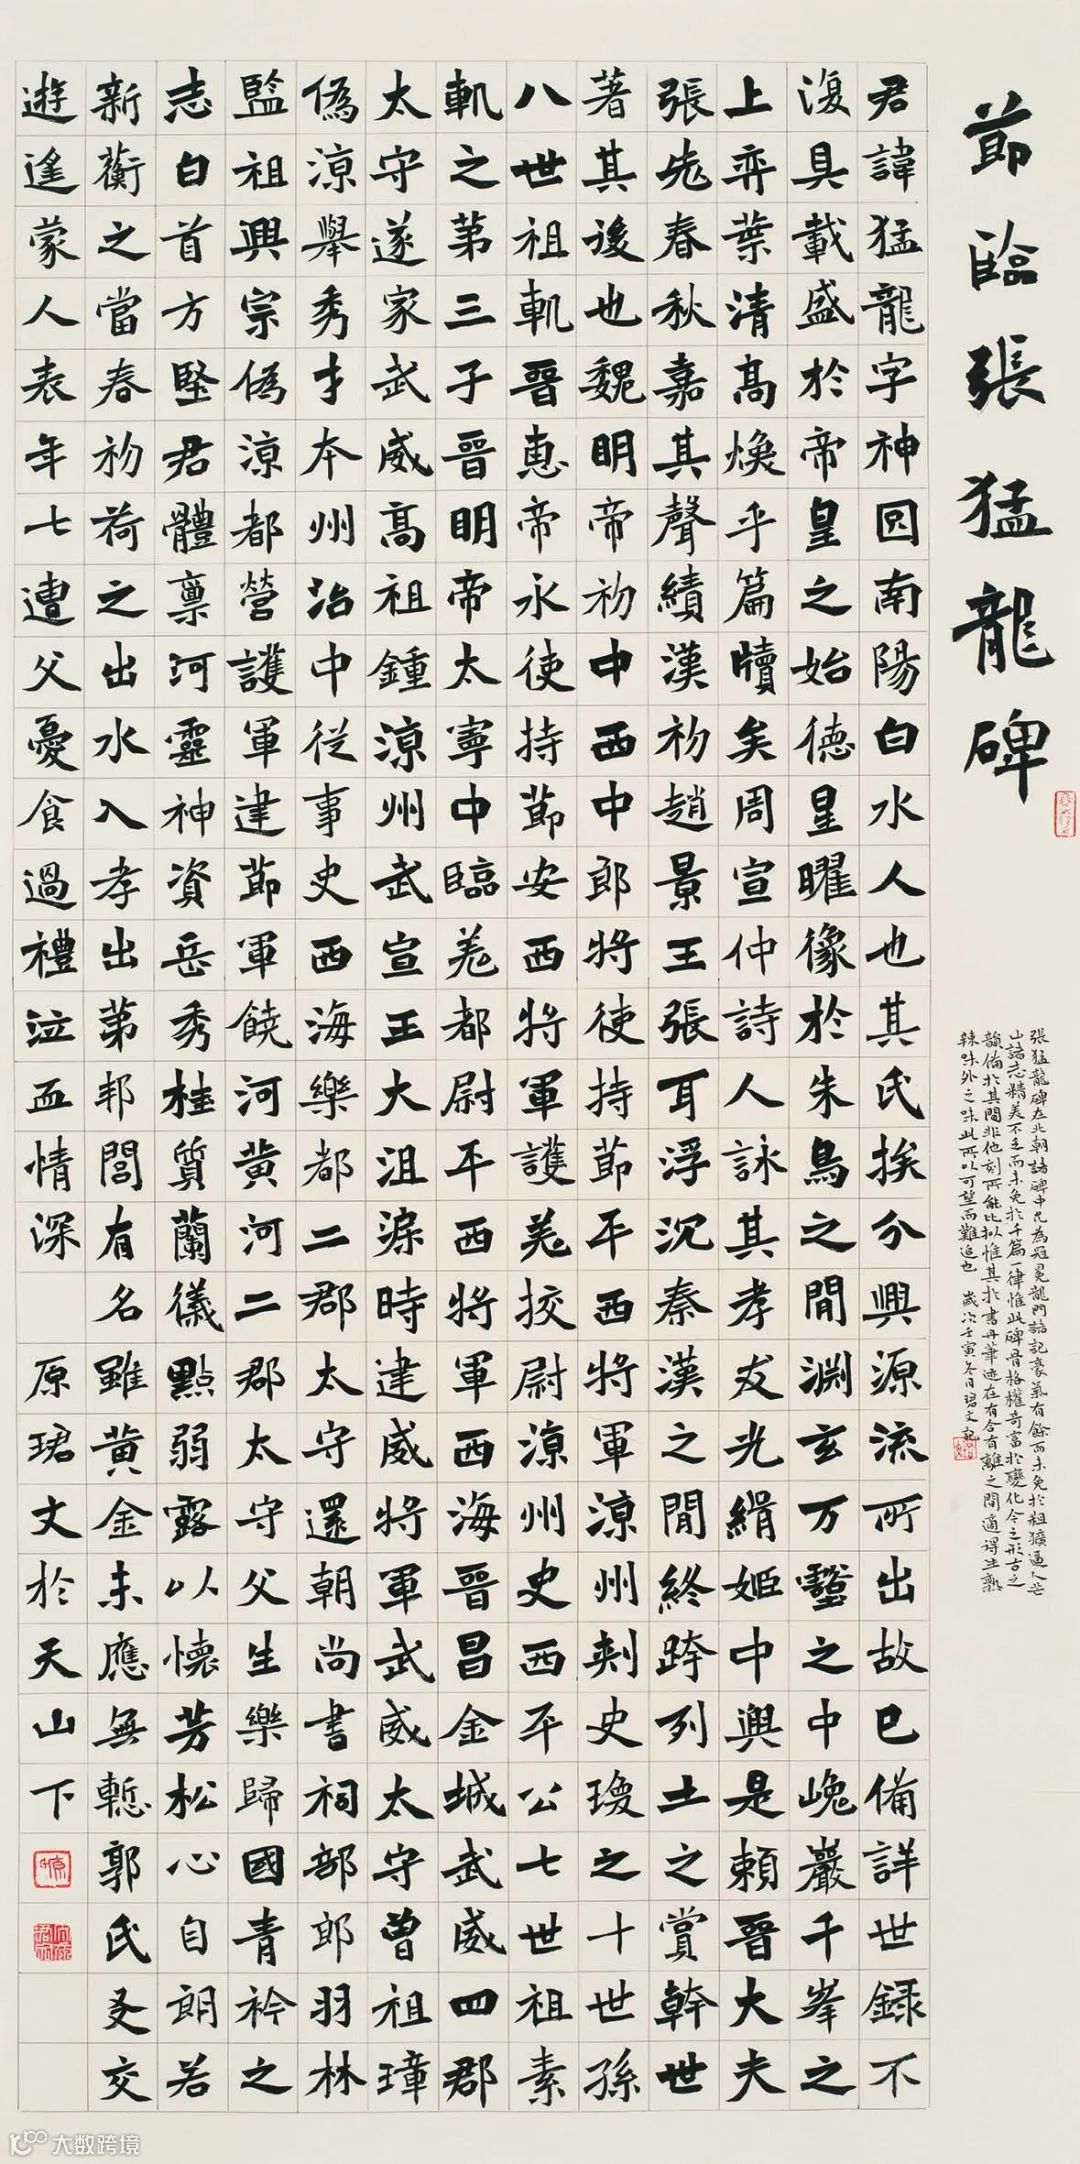 莭臨張猛龍碑
張猛龍碑在北朝諸碑中尤為冠冕龍門諸記豪氣有餘而未免於粗獷逼人芒
山諸志精美不乏而未免於千篇一律惟此碑骨格權奇富於變化今之形古之
韻備於其間非他刻所能比擬惟其於書丹筆迹在有合有離之間適得生熟
辣味外之味此所以可望而難追也 歲次壬寅冬日珺文記
君諱猛龍字神囙南陽白水人也其氏挨分興源流所出故已備詳世録不
復具載盛於帝皇之始德星曜像於朱鳥之閒淵玄万壑之中巉巖千峯之
上弈葉清高煥乎篇牘矣周宣仲詩人詠其孝友光緝姬中興是賴晉大夫
張先春秋嘉其聲績漢初趙景王張耳浮沉秦漢之閒終跨列土之賞幹世
著其後也魏明帝初中西中郎將使持莭平西將軍涼州刺史瓊之十世孫
八世祖軌晉惠帝永使持莭安西將軍護羌挍尉涼州史西平公七世祖素
軌之第三子晉明帝太寧中臨羌都尉平西將軍西海晉昌金城武威四郡
太守遂家武威高祖鍾涼州武宣王大沮渠時建威將軍武威太守曾祖璋
偽涼舉秀才本州治中從事史西海樂都二郡太守還朝尚書祠部郎羽林
監祖興宗偽涼都營護軍建莭軍饒河黃河二郡太守父生樂歸國青衿之
志白首方堅君體禀河靈神資岳秀桂質蘭儀點弱露以懷芳松心自朗若
新蘅之當春初荷之出水入孝出第邦閭有名雖黃金未應無慙郭氏友交
遊遙蒙人表年七遭父憂食過禮泣血情深 原珺文於天山下
大数跨境